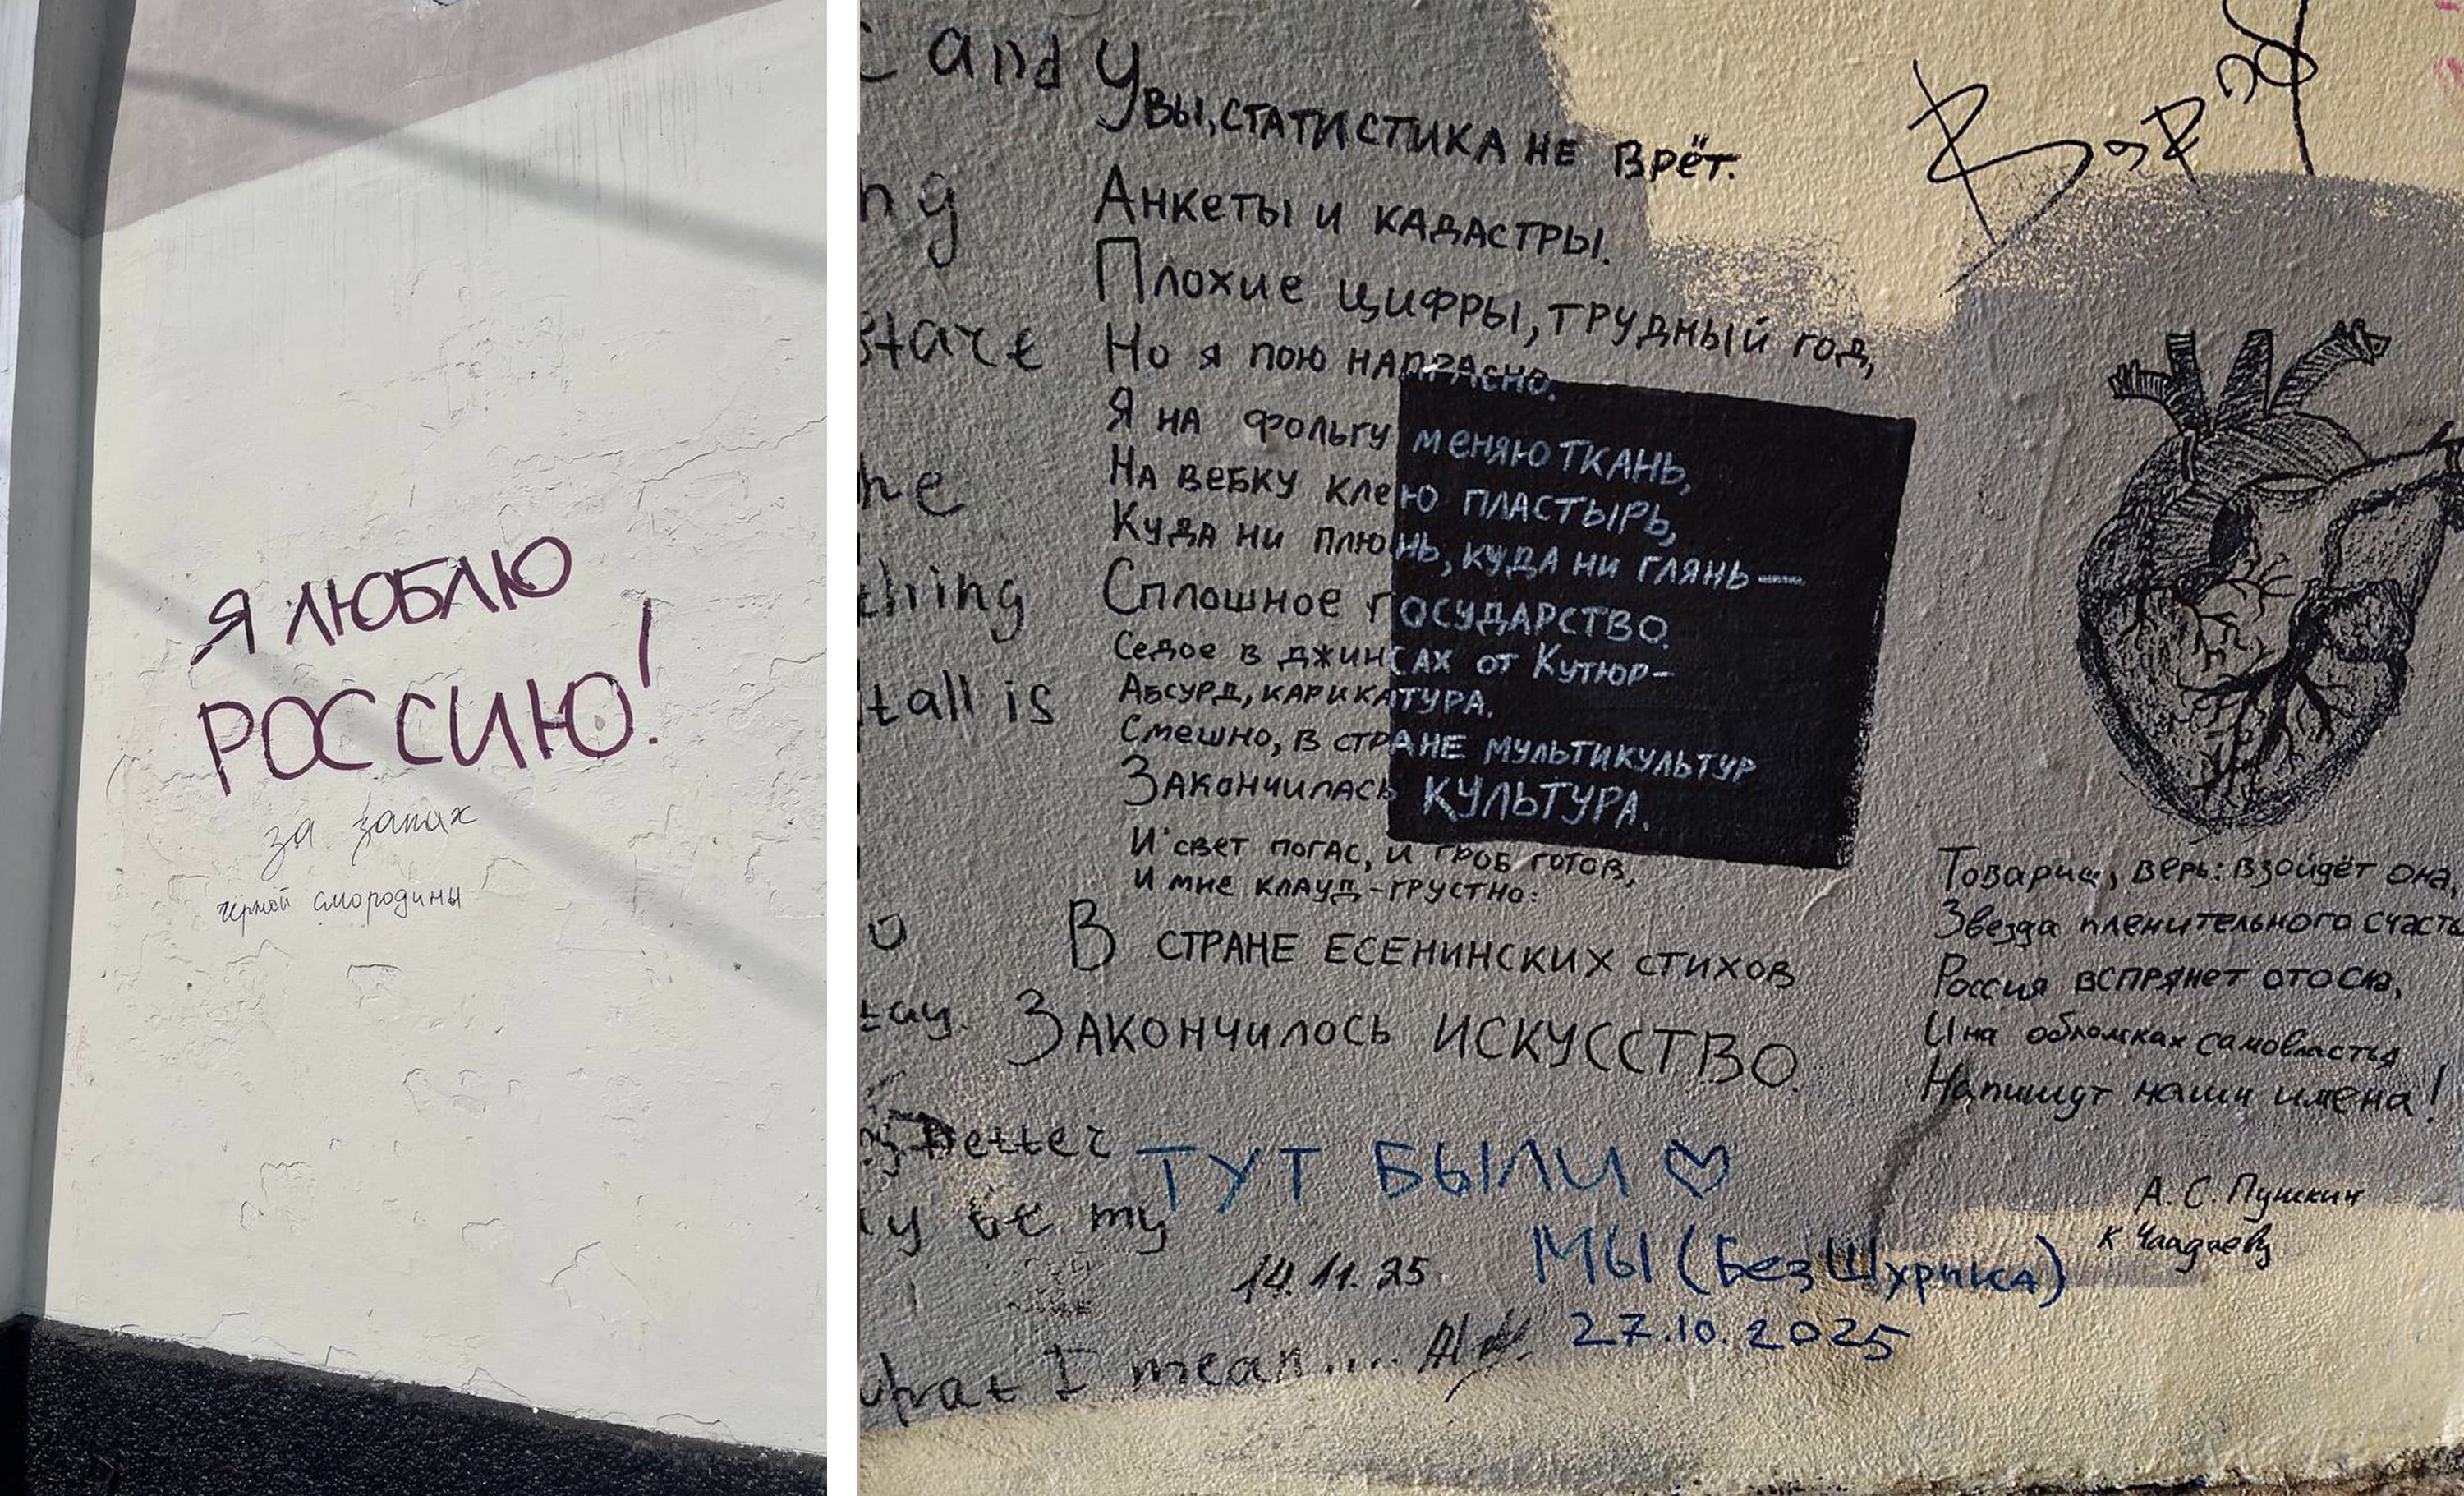 Я ЛЮБЛЮ
РОССИЮ!
за запах
чёрной смородины
and
УВЫ, СТАТИСТИКА НЕ ВРЁТ.
АНКЕТЫ И КАДАСТРЫ.
ПЛОХИЕ ЦИФРЫ, ТРУДНЫЙ ГОД,
НО Я ПОЮ НАПРАСНО.
Я НА ФОЛЬГУ МЕНЯЮ ТКАНЬ,
НА ВЕБКУ КЛЕЮ ПЛАСТЫРЬ,
КУДА НИ ПЛЮНЬ, КУДА НИ ГЛЯНЬ —
СПЛОШНОЕ ГОСУДАРСТВО.
СЕДОЕ В ДЖИНСАХ ОТ КУТЮР -
АБСУРД, КАРИКАТУРА.
СМЕШНО, В СТРАНЕ МУЛЬТИКУЛЬТУР
ЗАКОНЧИЛАСЬ КУЛЬТУРА.
И СВЕТ ПОГАС, И ГРОБ ГОТОВ,
И МНЕ КЛАУД - ГРУСТНО:
В СТРАНЕ ЕСЕНИНСКИХ СТИХОВ
ЗАКОНЧИЛОСЬ ИСКУССТВО.
ng
stare
he
thing
t all is
tay.
better
ly be my
what I mean....
ТУТ БЫЛИ ♡
МЫ (Без Шурика)
27.10.2025
14.11.25
Товарищ, верь: взойдёт она,
Звезда пленительного счасть
Россия вспрянет ото сна,
И на обломках самовластья
Напишут наши имена!
А. С. Пушкин
К Чаадаеву